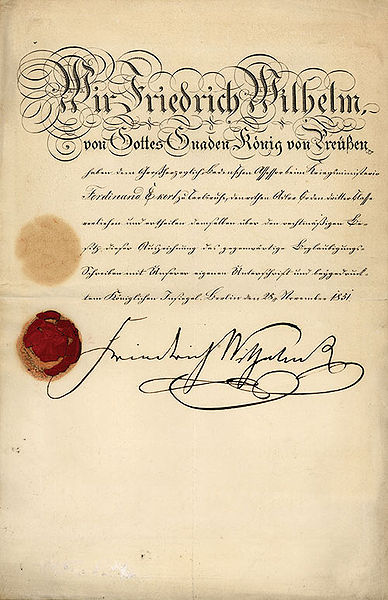 Wir Friedrich Wilhelm,
von Gottes Gnaden König von Preußen,
haben dem Großherzoglich Badenschen Assessor beim Kriegsministerio
Ferdinand Ekert zu Carlsruhe, den rothen Adler Orden dritter Klasse
verliehen und ertheilen demselben über den rechtmäßigen Be-
sitz dieser Auszeichnung das gegenwärtige Beglaubigungs-
Schreiben mit Unserer eigenen Unterschrift und beygedruck-
tem Königlichen Insiegel. Berlin den 28 November 1851
Friedrich Wilhelm